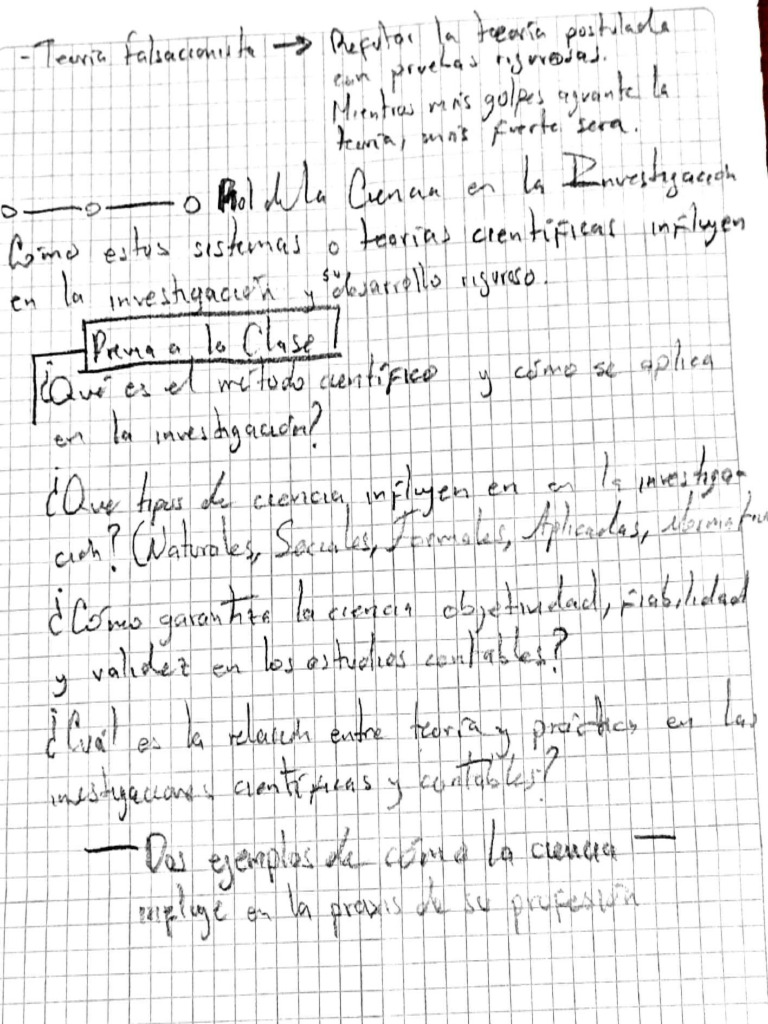 - Teoría falsacionista → Refutar la teoría postulada
con pruebas rigurosas.
Mientras más golpes aguante la
teoría, más fuerte sera.
Rol de la Ciencia en la Investigación
Cómo estos sistemas o teorías científicas influyen
en la investigación y su desarrollo riguroso.
Previa a la Clase
¿Qué es el método científico y cómo se aplica
en la investigación?
¿Que tipos de ciencia influyen en en la investiga-
ción? (Naturales, Sociales, Formales, Aplicadas,
¿Cómo garantiza la ciencia objetividad, fiabilidad
y validez en los estudios contables?
¿Cuál es la relación entre teoría y práctica en las
investigaciones científicas y contables?
— Dos ejemplos de cómo la ciencia —
influye en la praxis de su profesión